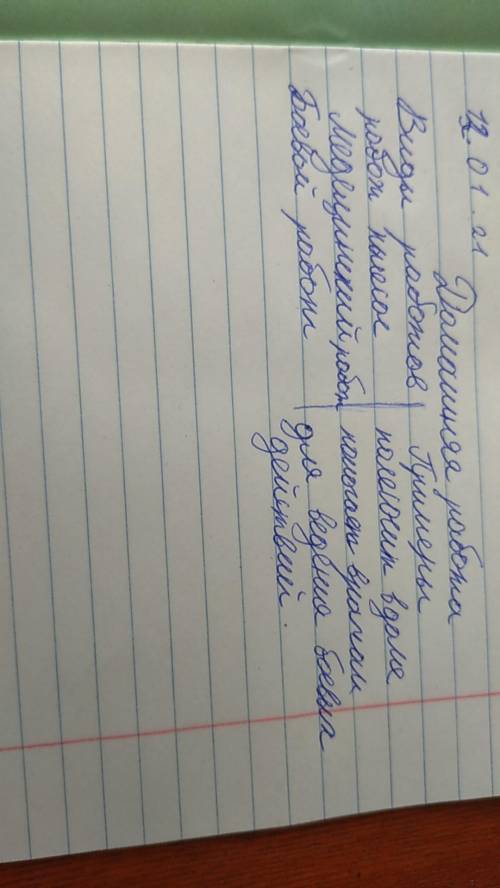 12.01.21
Домашняя работа
Виды работов | Примеры
робот пылесос | помогает вдома
медецинский робот | помогает врачам
Боевой работ | для ведения боевых
действий.